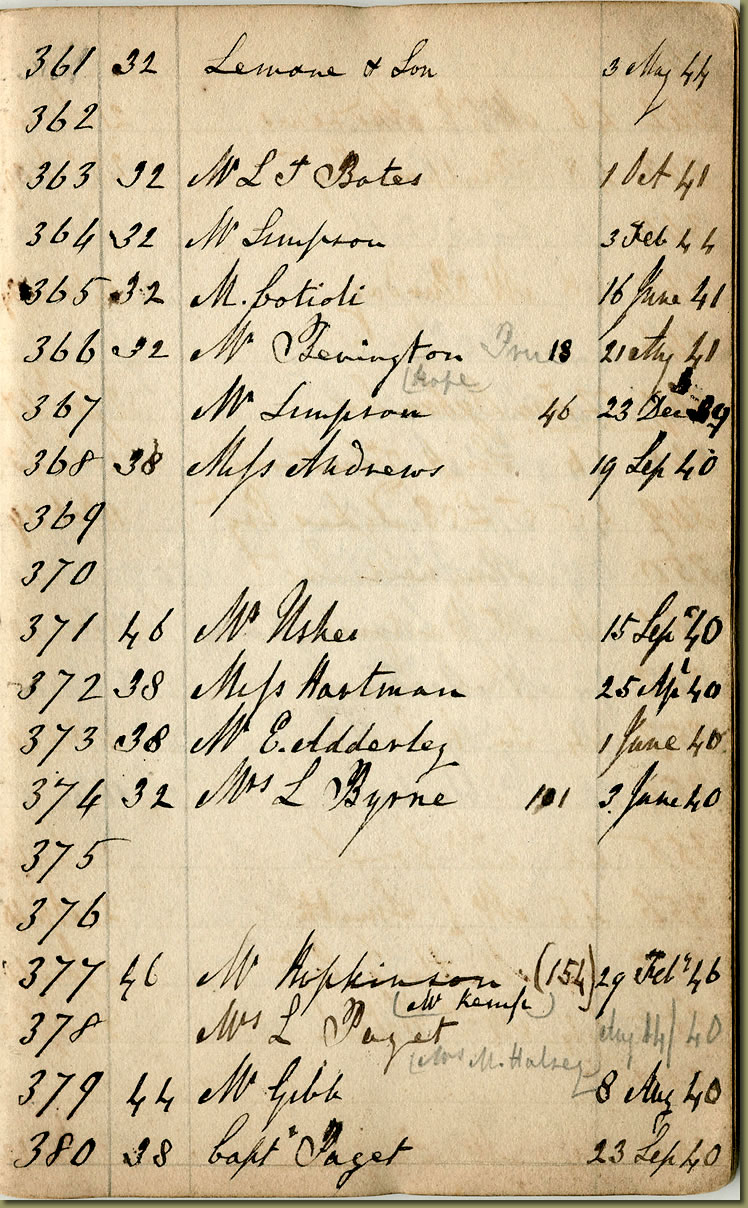 361 32 Lemane & Son 3 May 44
362
363 32 Mr L T Bates 1 Oct 41
364 32 Mr Simpson 3 Feb 44
365 32 M. Cotioli 16 June 41
366 32 Mr Bevington 18 21 May 41
(Hope
367 Mr Simpson 46 23 Dec 39
368 38 Miss Andrews 19 Sep 40
369
370
371 46 Mr Usher 15 Sepr 40
372 38 Miss Hartman 25 Apl 40
373 38 Mr E. Adderley 1 June 40
374 32 Mrs L Byrne 101 3 June 40
375
376
377 46 Mr Hopkinson (154) 29 Febr 46
(Mr Kemp)
378 Mrs L Paget Aug 14/40
(Mrs M. Halsey
379 44 Mr Gibb 8 Aug 40
380 38 Captn Paget 23 Sep 40